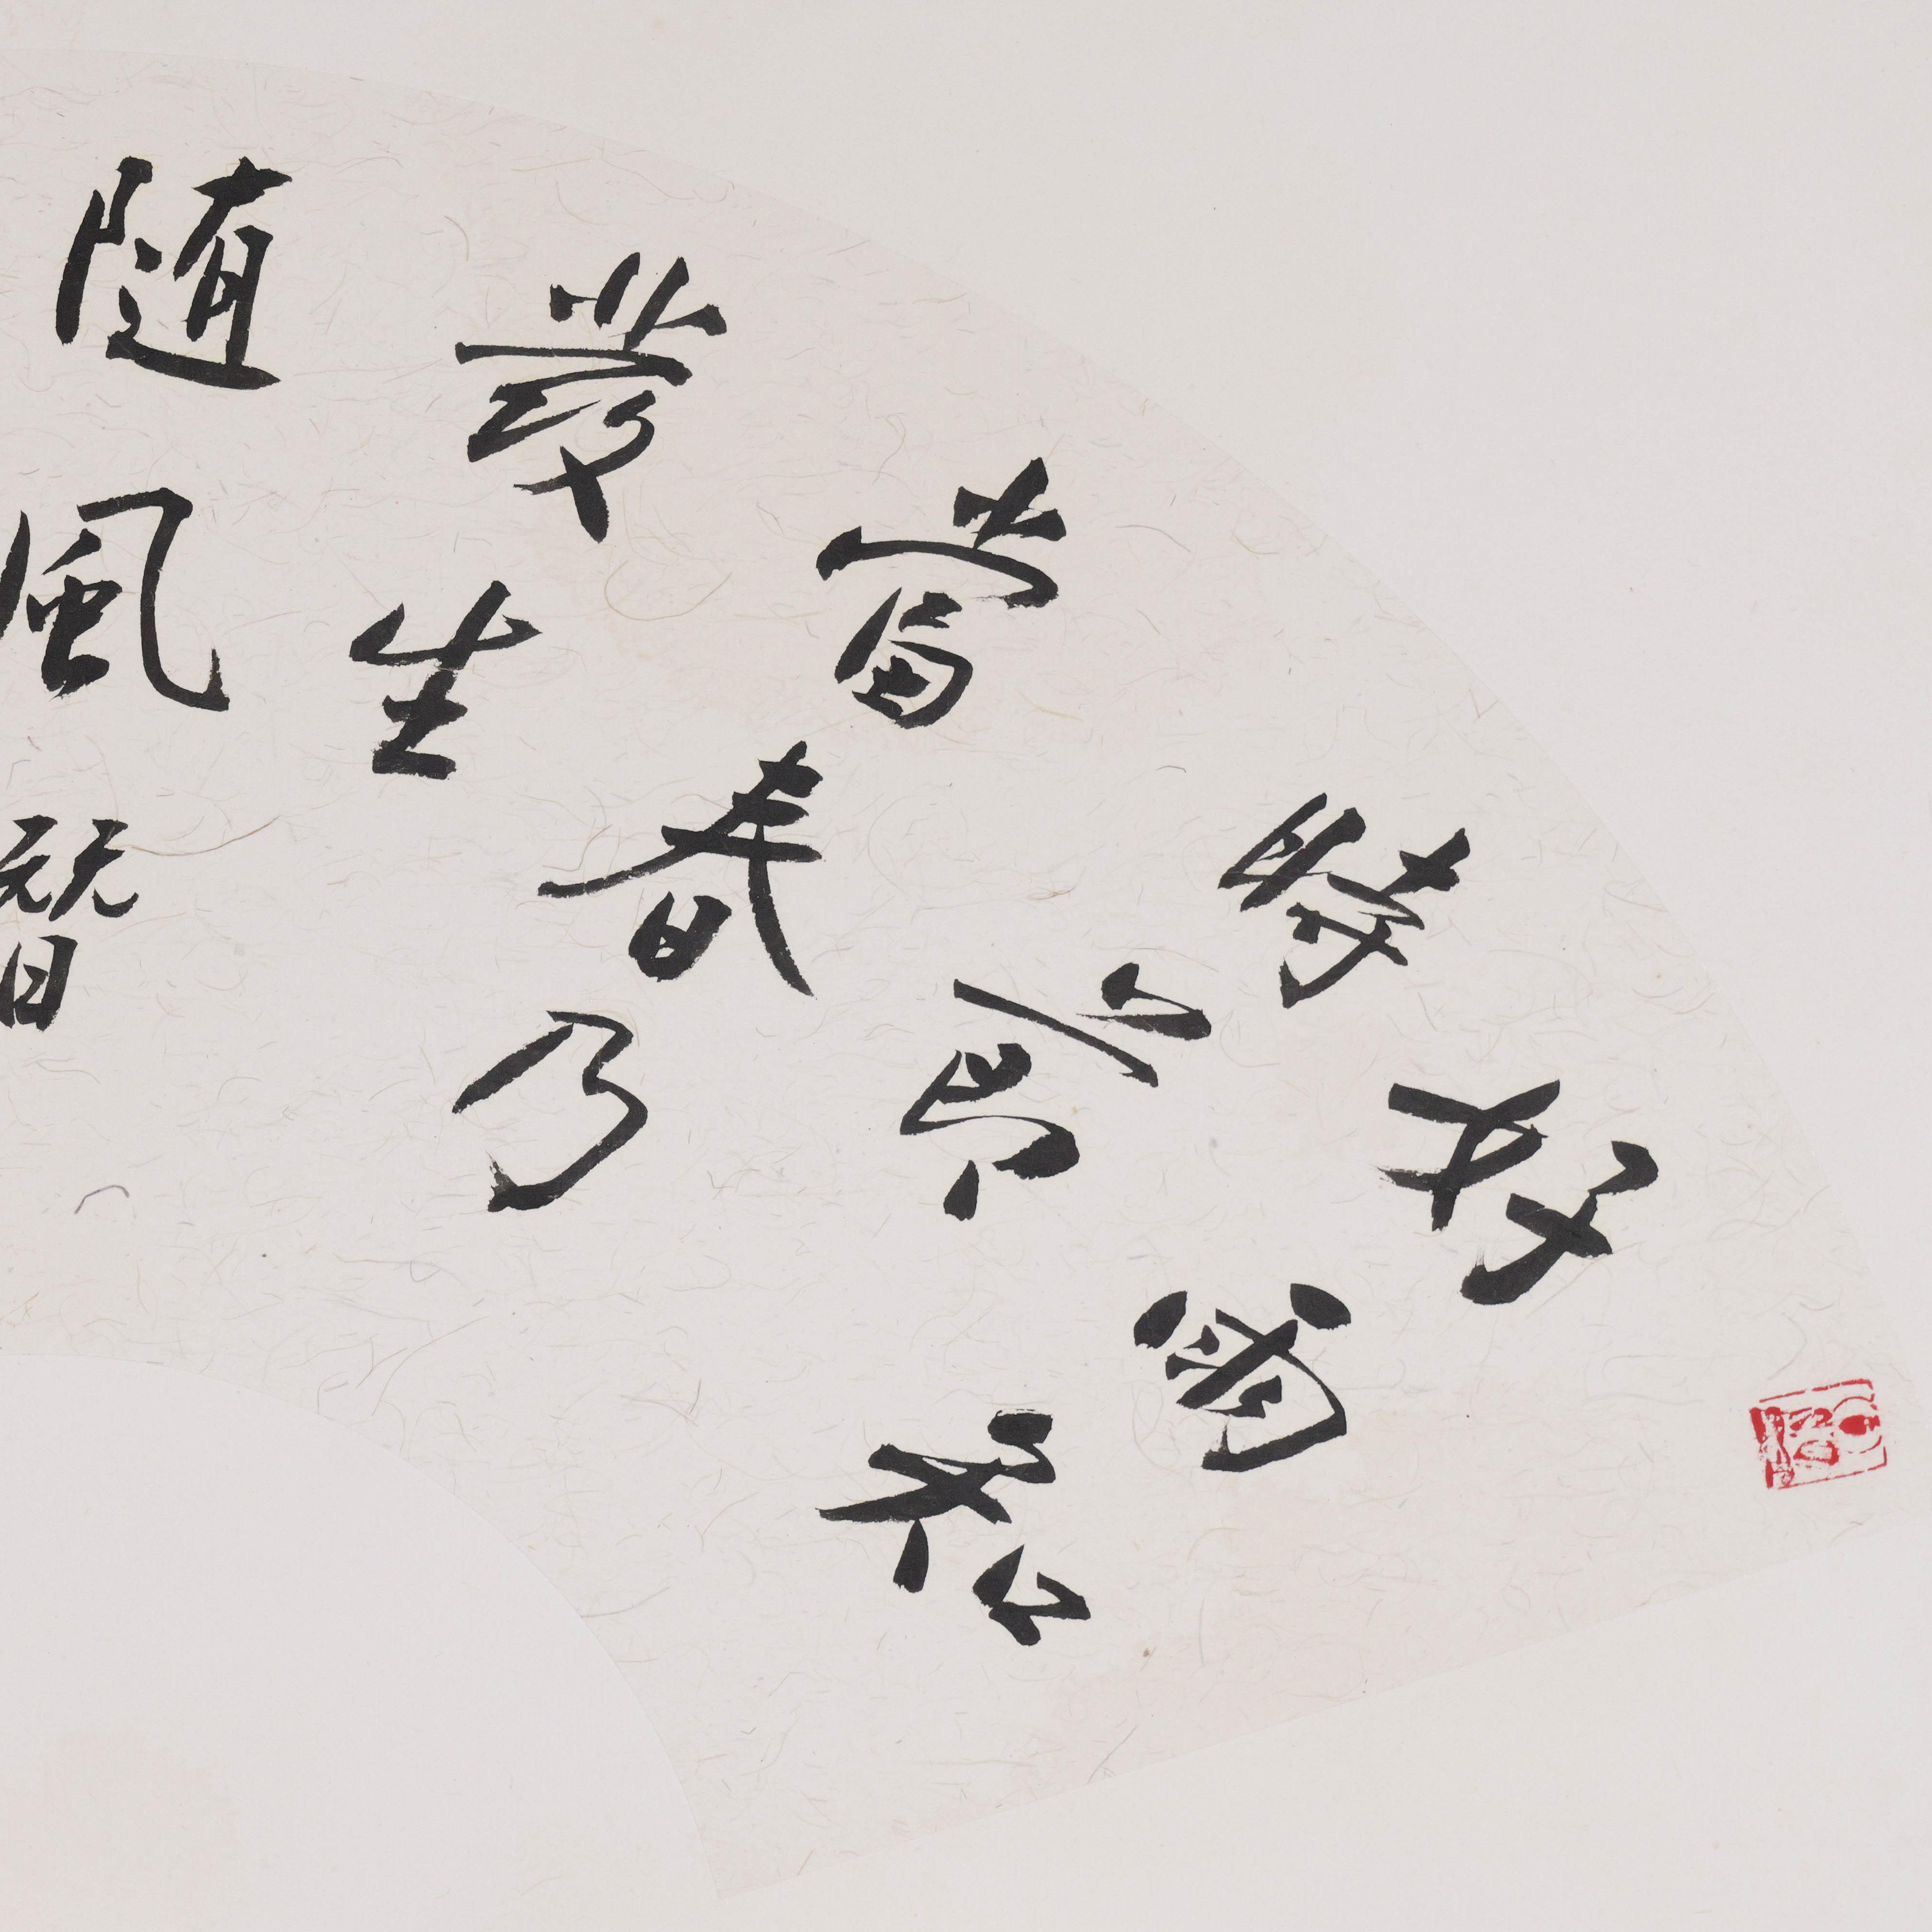 好雨知
時節
當春乃
發生
随風潛